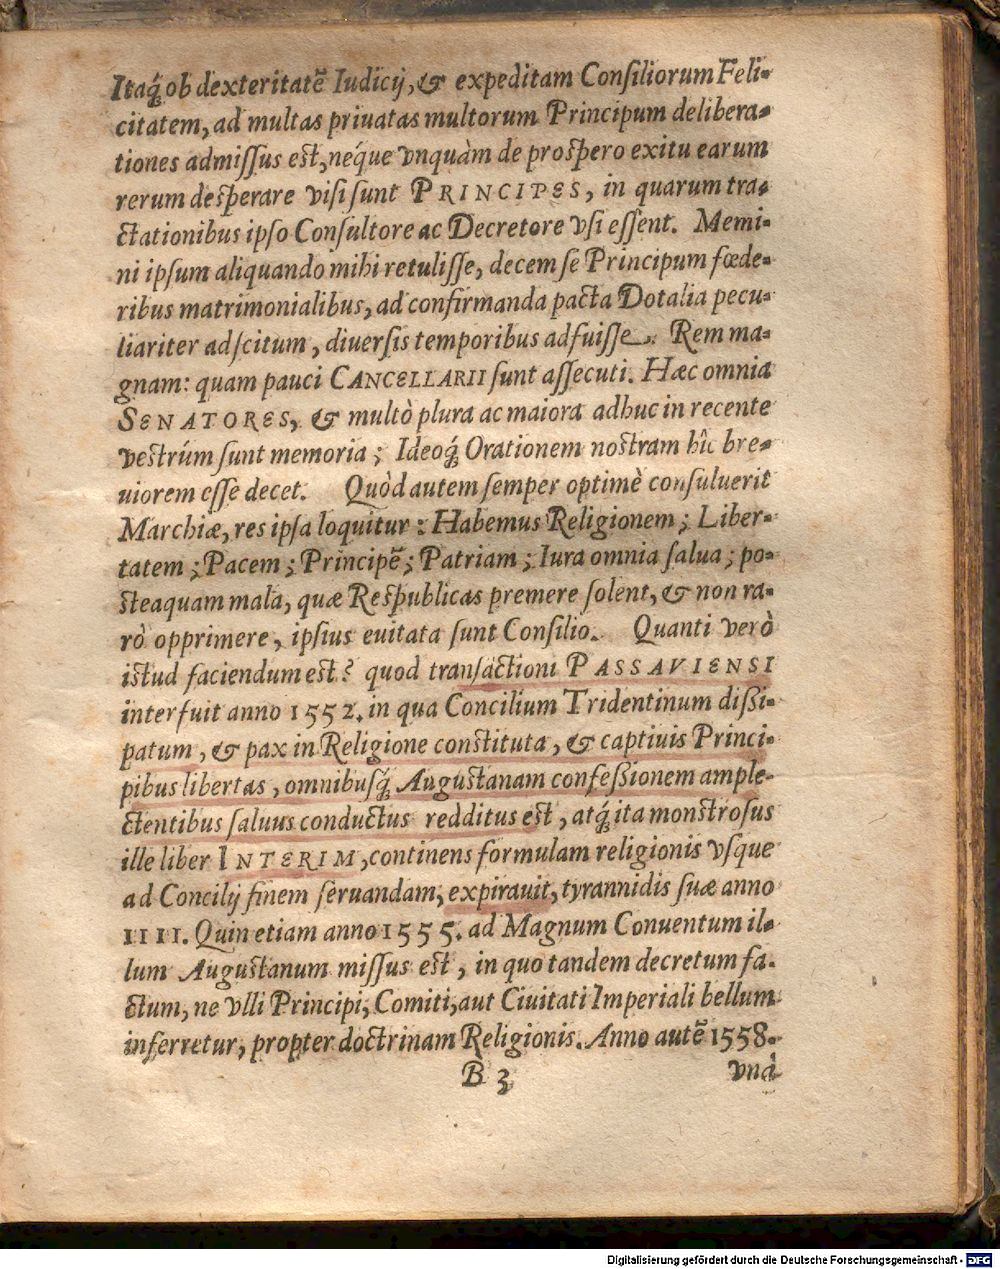 Itaq́; ob dexteritatē Iudicij, & expeditam Consiliorum Feli-
citatem, ad multas priuatas multorum Principum delibera-
tiones admissus est, néque vnquàm de prospero exitu earum
rerum desperare visi sunt PRINCIPES, in quarum tra-
ctationibus ipso Consultore ac Decretore vsi essent. Memi-
ni ipsum aliquando mihi retulisse, decem se Principum fœde-
ribus matrimonialibus, ad confirmanda pacta Dotalia pecu-
liariter adscitum, diuersis temporibus adfuisse. Rem ma-
gnam: quam pauci CANCELLARII sunt assecuti. Hæc omnia
SENATORES, & multò plura ac maiora adhuc in recente
vestrúm sunt memoria; Ideoq́; Orationem nostram hîc bre-
uiorem esse decet. Quòd autem semper optimè consuluerit
Marchiæ, res ipsa loquitur: Habemus Religionem; Liber-
tatem; Pacem; Principē; Patriam; Iura omnia salua; po-
steaquam mala, quæ Respublicas premere solent, & non ra-
rò opprimere, ipsius euitata sunt Consilio. Quanti verò
istud faciendum est? quod transactioni PASSAVIENSI
interfuit anno 1552. in qua Concilium Tridentinum dißi-
patum, & pax in Religione constituta, & captiuis Princi-
pibus libertas, omnibusq́; Augustanam confeßionem ample-
ctentibus saluus conductus redditus est, atq́; ita monstrosus
ille liber INTERIM, continens formulam religionis vsque
ad Concilij finem seruandam, expirauit, tyrannidis suæ anno
IIII. Quin etiam anno 1555. ad Magnum Conuentum il-
lum Augustanum missus est, in quo tandem decretum fa-
ctum, ne vlli Principi, Comiti, aut Ciuitati Imperiali bellum
inferretur, propter doctrinam Religionis. Anno autē 1558.
B 3 vnà
Digitalisierung gefördert durch die Deutsche Forschungsgemeinschaft - DFG